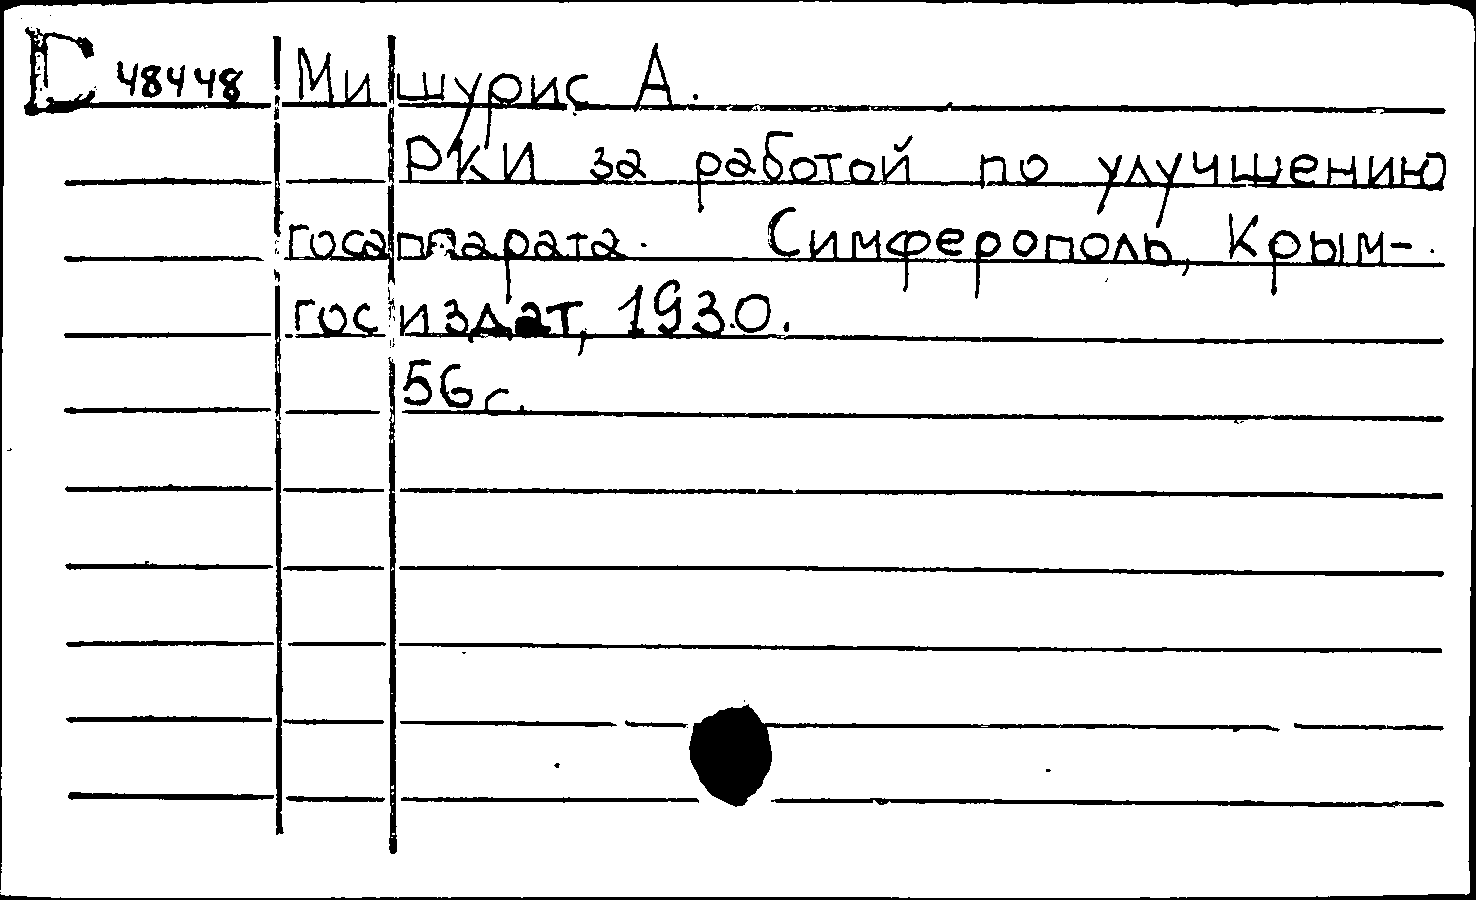 48448 Мишурис А.
РКИ за работой по улучшению
госаппарата. Симферополь, Крым-
госиздат, 1930.
56 с.